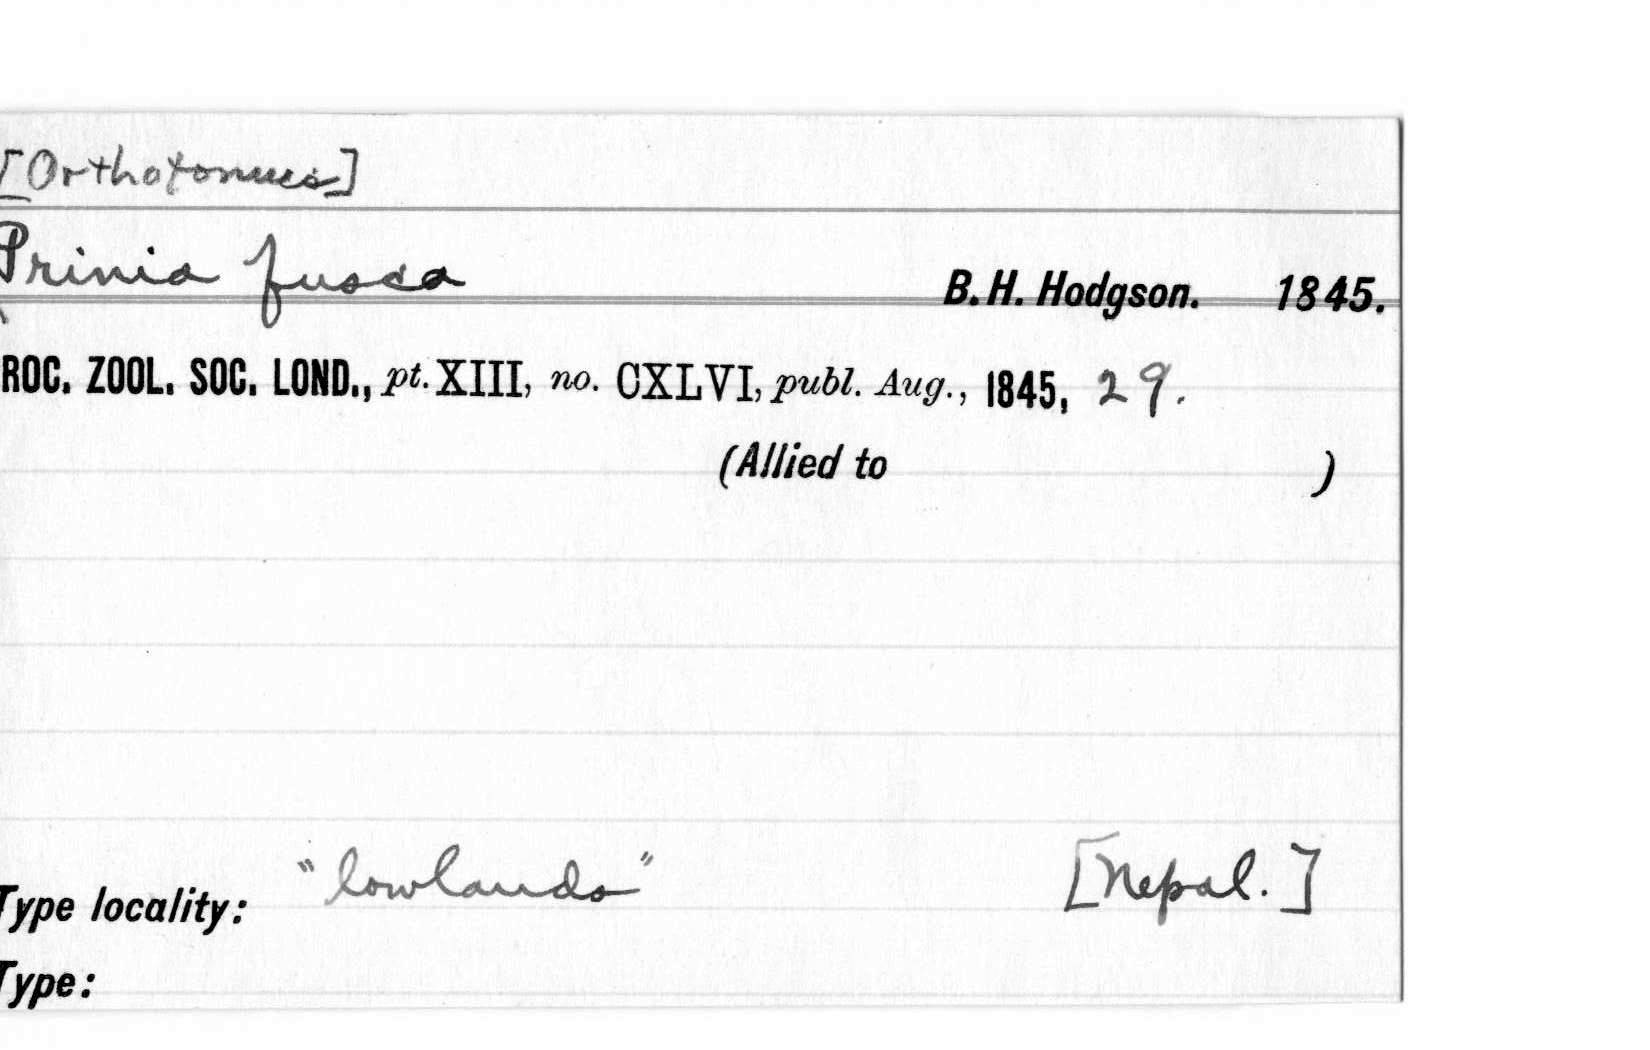 [Orthotomus]
Prinia fusca B. H. Hodgson. 1845.
ROC. ZOOL. SOC. LOND., pt. XIII, no. CXLVI, publ. Aug., 1845, 29.
(Allied to )
Type locality: "lowlands" [Nepal.]
Type: